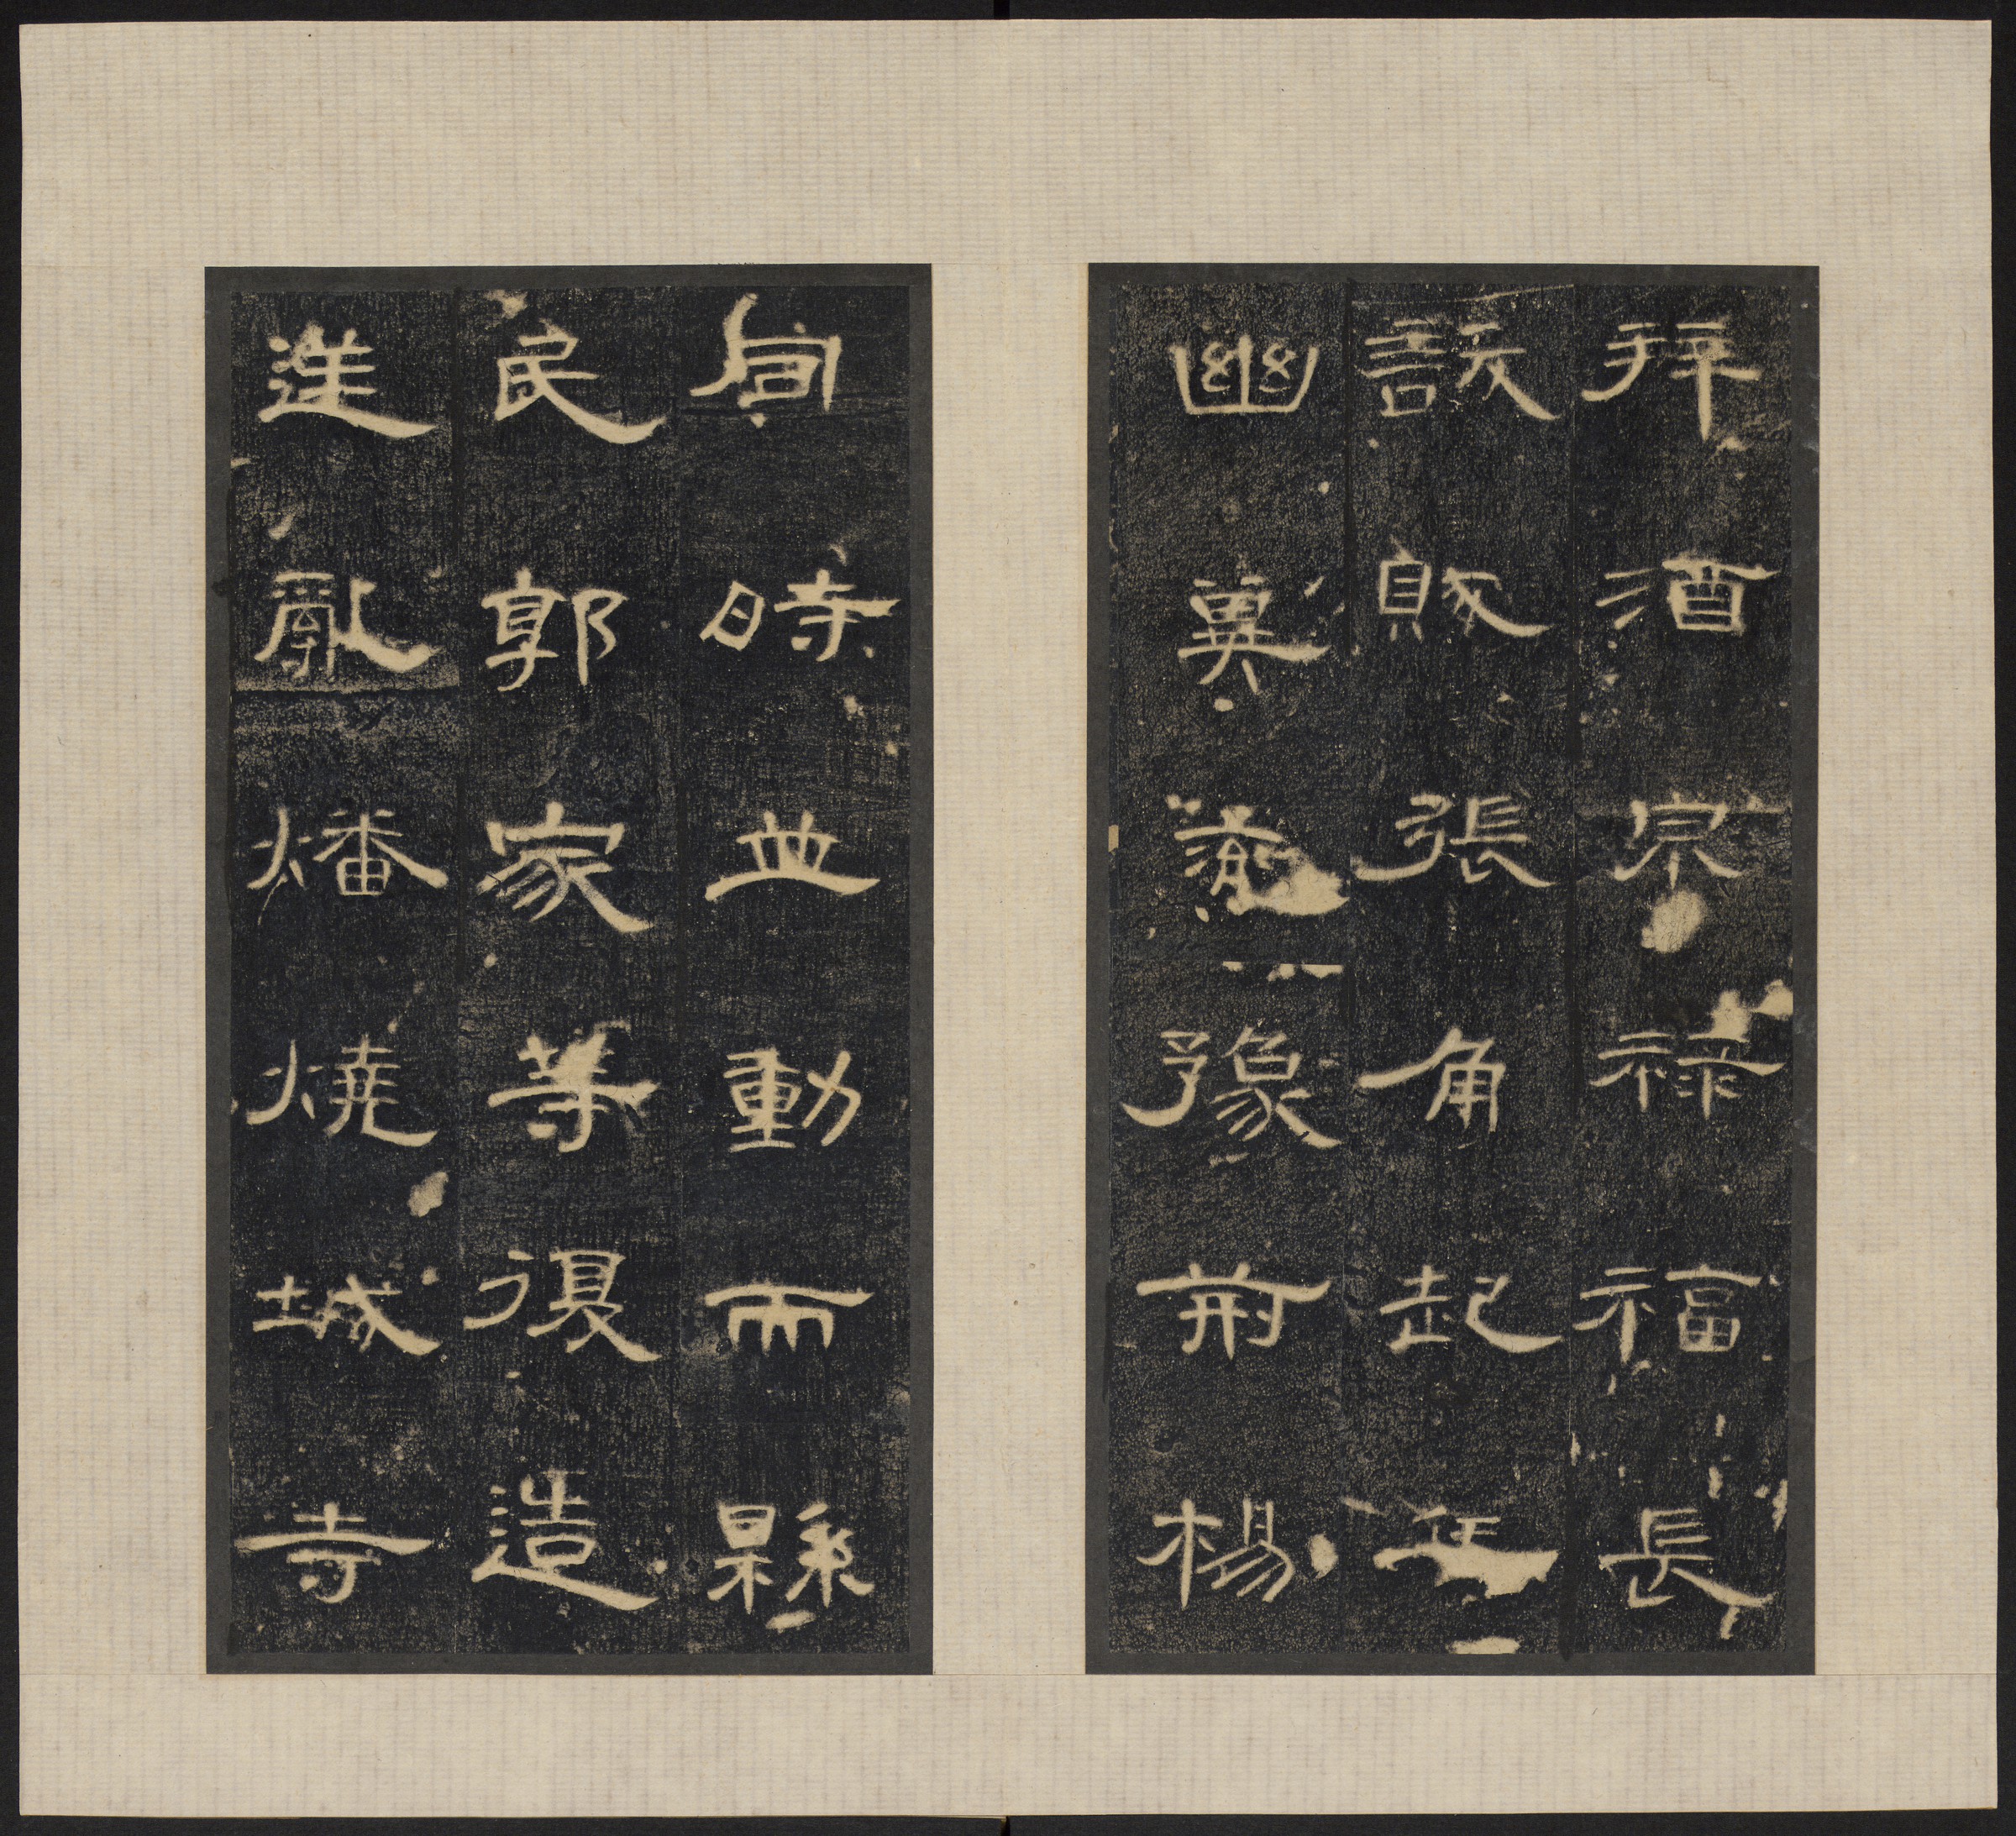 拜酒泉祿福長
訞賊張角起兵
幽冀兗豫荊楊
同時並動而縣
民郭家等復造
逆亂燔燒城寺